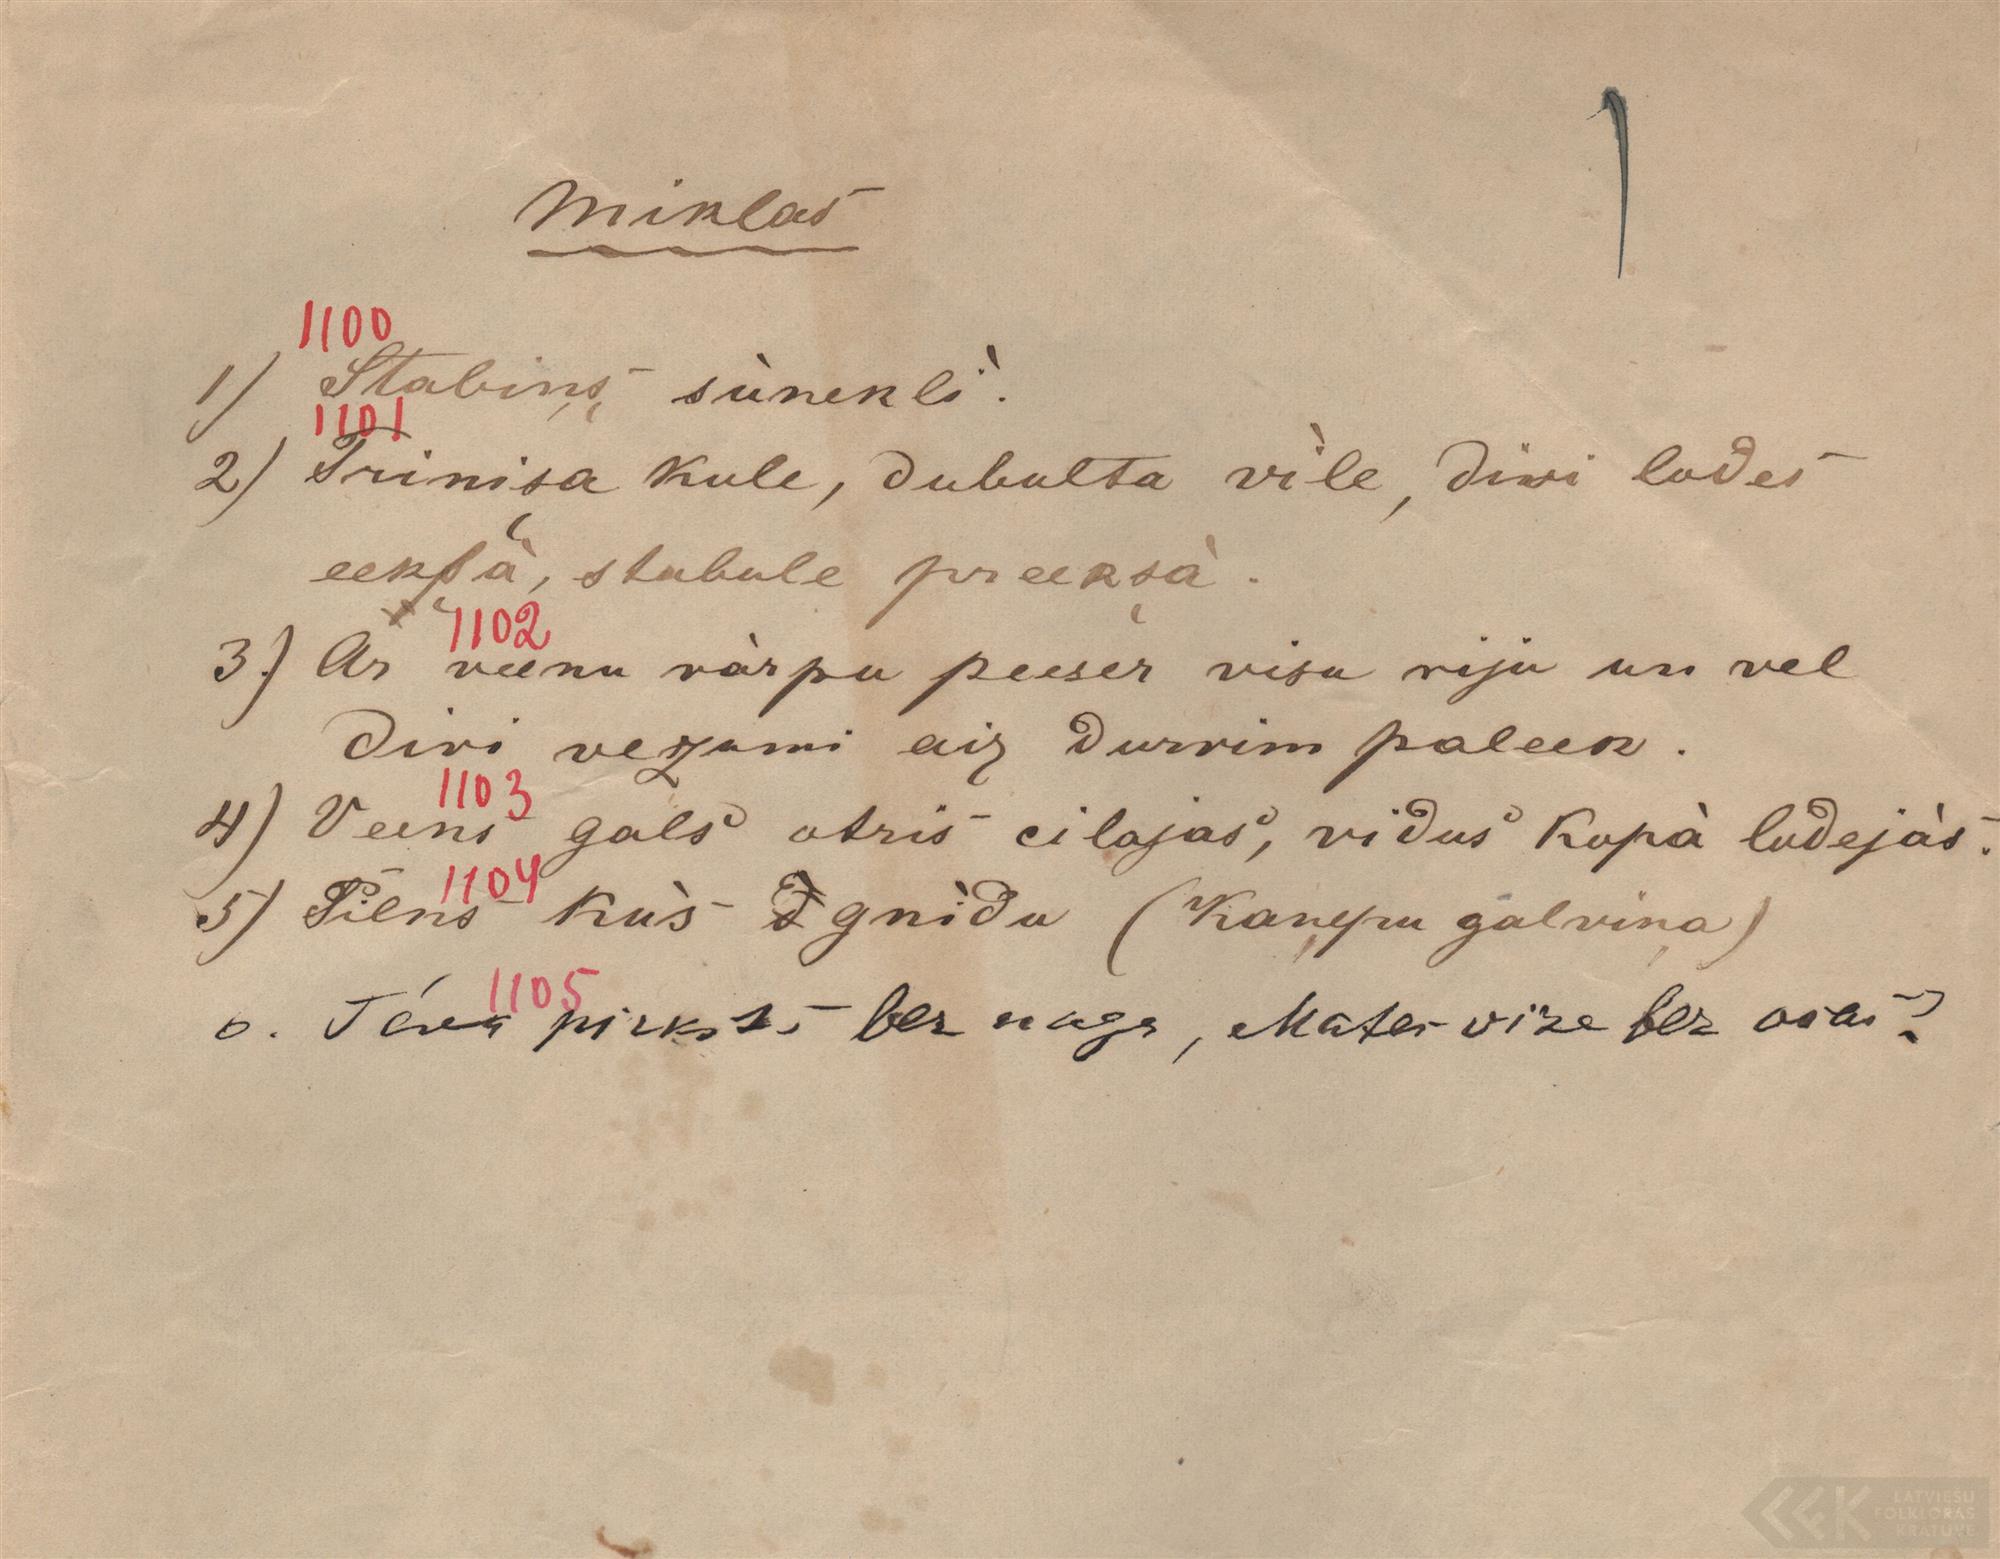 1
Miklas
1100
1) Stabiņš sùneklì.
1101
2) Trinisa kule, dubulta vìle, divi lodes
eekšà, stabule preekšà.
1102
3) Ar veenu vàrpu peeser visu riju un vel
divi vezumi aiz durvim paleek.
1103
4) Veens gals otris cilajas, vidus kopà lodejàs.
1104
5) Pilns kùs gnìdu (Kaņepu galviņa)
1105
6. Tèva pirksts bez naga, Mates vize bez osas?
LATVIEŠU
FOLKLORAS
KRĀTUVE